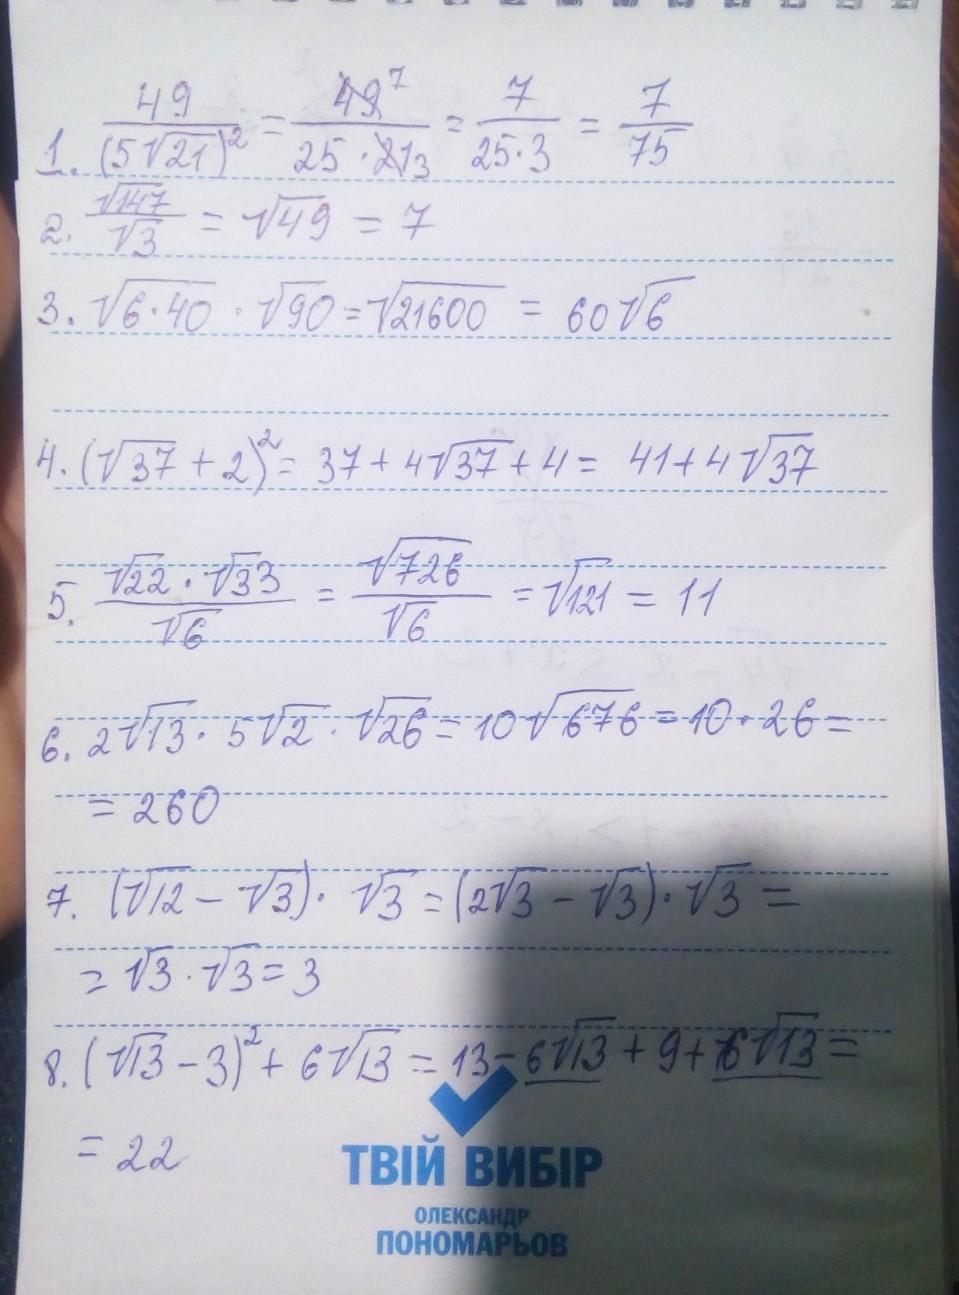 1. 49/(5√21)² = 49⁷/25·21₃ = 7/25·3 = 7/75
2. √147/√3 = √49 = 7
3. √6·40 · √90 = √21600 = 60√6
4. (√37 + 2)² = 37 + 4√37 + 4 = 41 + 4√37
5. √22 · √33/√6 = √726/√6 = √121 = 11
6. 2√13 · 5√2 · √26 = 10√676 = 10 · 26 =
= 260
7. (√12 − √3) · √3 = (2√3 − √3) · √3 =
= √3 · √3 = 3
8. (√13 − 3)² + 6√13 = 13 − 6√13 + 9 + 6√13 =
= 22
ТВІЙ ВИБІР
ОЛЕКСАНДР
ПОНОМАРЬОВ